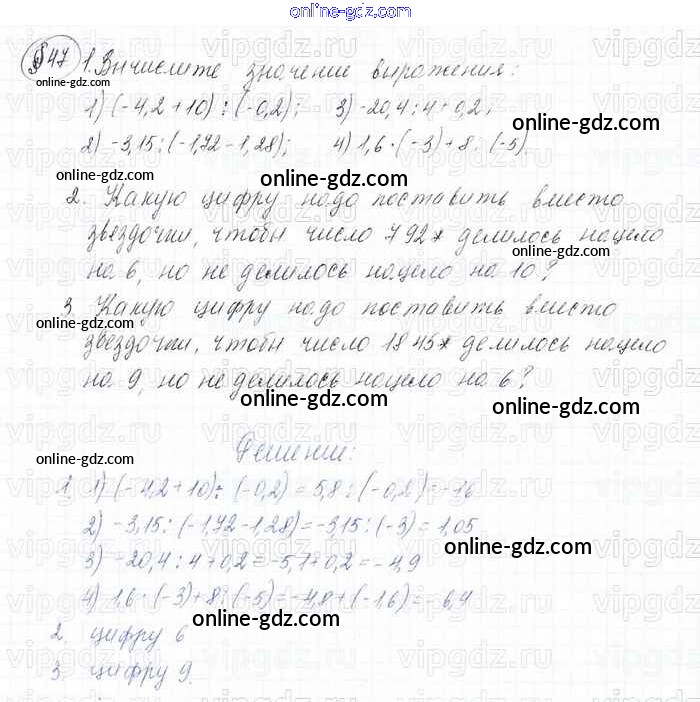 online-gdz.com
§47 1. Вычислите значение выражения:
1) (-4,2+10) : (-0,2); 3) -20,4:4+0,2;
online-gdz.com
2) -3,15:(-1,72-1,28); 4) 1,6·(-3)+8:(-5).
online-gdz.com
2. Какую цифру надо поставить вместо
звёздочки, чтобы число 792* делилось нацело
на 6, но не делилось нацело на 10?
online-gdz.com
3. Какую цифру надо поставить вместо
online-gdz.com
звёздочки, чтобы число 1845* делилось нацело
на 9, но не делилось нацело на 6?
online-gdz.com
online-gdz.com
Решение:
online-gdz.com
1. 1) (-4,2+10) : (-0,2) = 5,8 : (-0,2) =
2) -3,15:(-1,72-1,28)=-3,15:(-3)=1,05
online-gdz.com
3) -20,4:4+0,2=-5,1+0,2=-4,9
4) 1,6·(-3)+8:(-5)=-4,8+(-1,6)=-6,4
online-gdz.com
2. цифру 6
3. цифру 9.
online-gdz.com